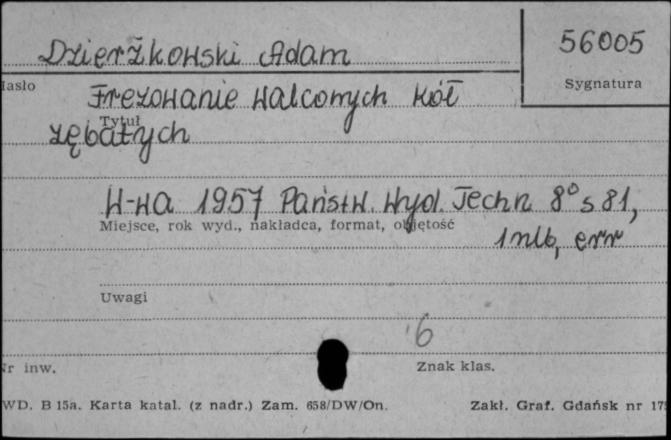 Dzierżkowski Adam
56005
Hasło
Sygnatura
Frezowanie walcowych kół
Tytuł
zębatych
W-wa 1957 Państw. Wyd. Techn 8° s 81,
Miejsce, rok wyd., nakładca, format, objętość
1 nlb, err
Uwagi
6
Nr inw.
Znak klas.
WD. B 15a. Karta katal. (z nadr.) Zam. 658/DW/On.
Zakł. Graf. Gdańsk nr 175